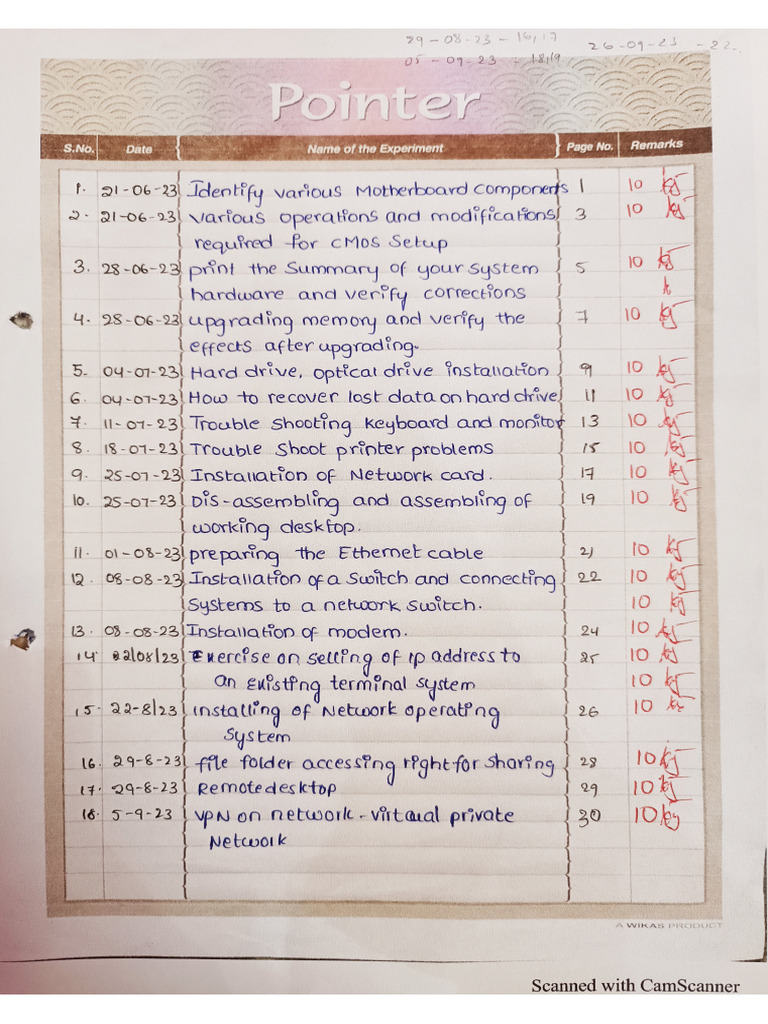 29-08-23 - 16,17
26-09-23 - 22
05-09-23 - 18,19
Pointer
S.No. Date Name of the Experiment Page No. Remarks
1. 21-06-23 Identify various Motherboard components 1 10
2. 21-06-23 various operations and modifications 3 10
required for CMOS Setup
3. 28-06-23 print the Summary of your System 5 10
hardware and verify corrections
4. 28-06-23 upgrading memory and verify the 7 10
effects after upgrading.
5. 04-07-23 Hard drive, optical drive installation 9 10
6. 04-07-23 How to recover lost data on hard drive 11 10
7. 11-07-23 Trouble shooting keyboard and monitor 13 10
8. 18-07-23 Trouble Shoot printer problems 15 10
9. 25-07-23 Installation of Network card. 17 10
10. 25-07-23 Dis-assembling and assembling of 19 10
working desktop.
11. 01-08-23 preparing the Ethernet cable 21 10
12. 08-08-23 Installation of a Switch and connecting 22 10
Systems to a network switch. 10
13. 08-08-23 Installation of modem. 24 10
14. 22/08/23 Exercise on setting of ip address to 25 10
an existing terminal system 10
15. 22-8/23 installing of Network operating 26 10
System
16. 29-8-23 file folder accessing right for sharing 28 10
17. 29-8-23 Remotedesktop 29 10
18. 5-9-23 VPN on network - virtual private 30 10
Network
A WIKAS PRODUCT
Scanned with CamScanner